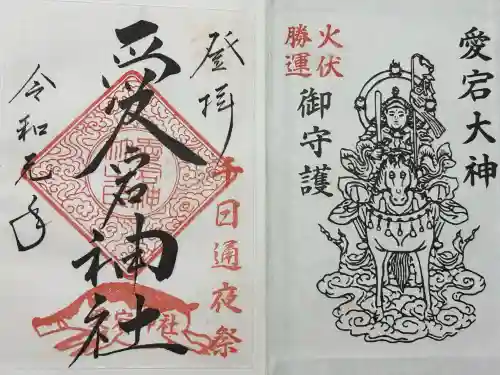 登拝
愛宕神社
令和元年
千日通夜祭
愛宕大神
火伏
勝運
御守護